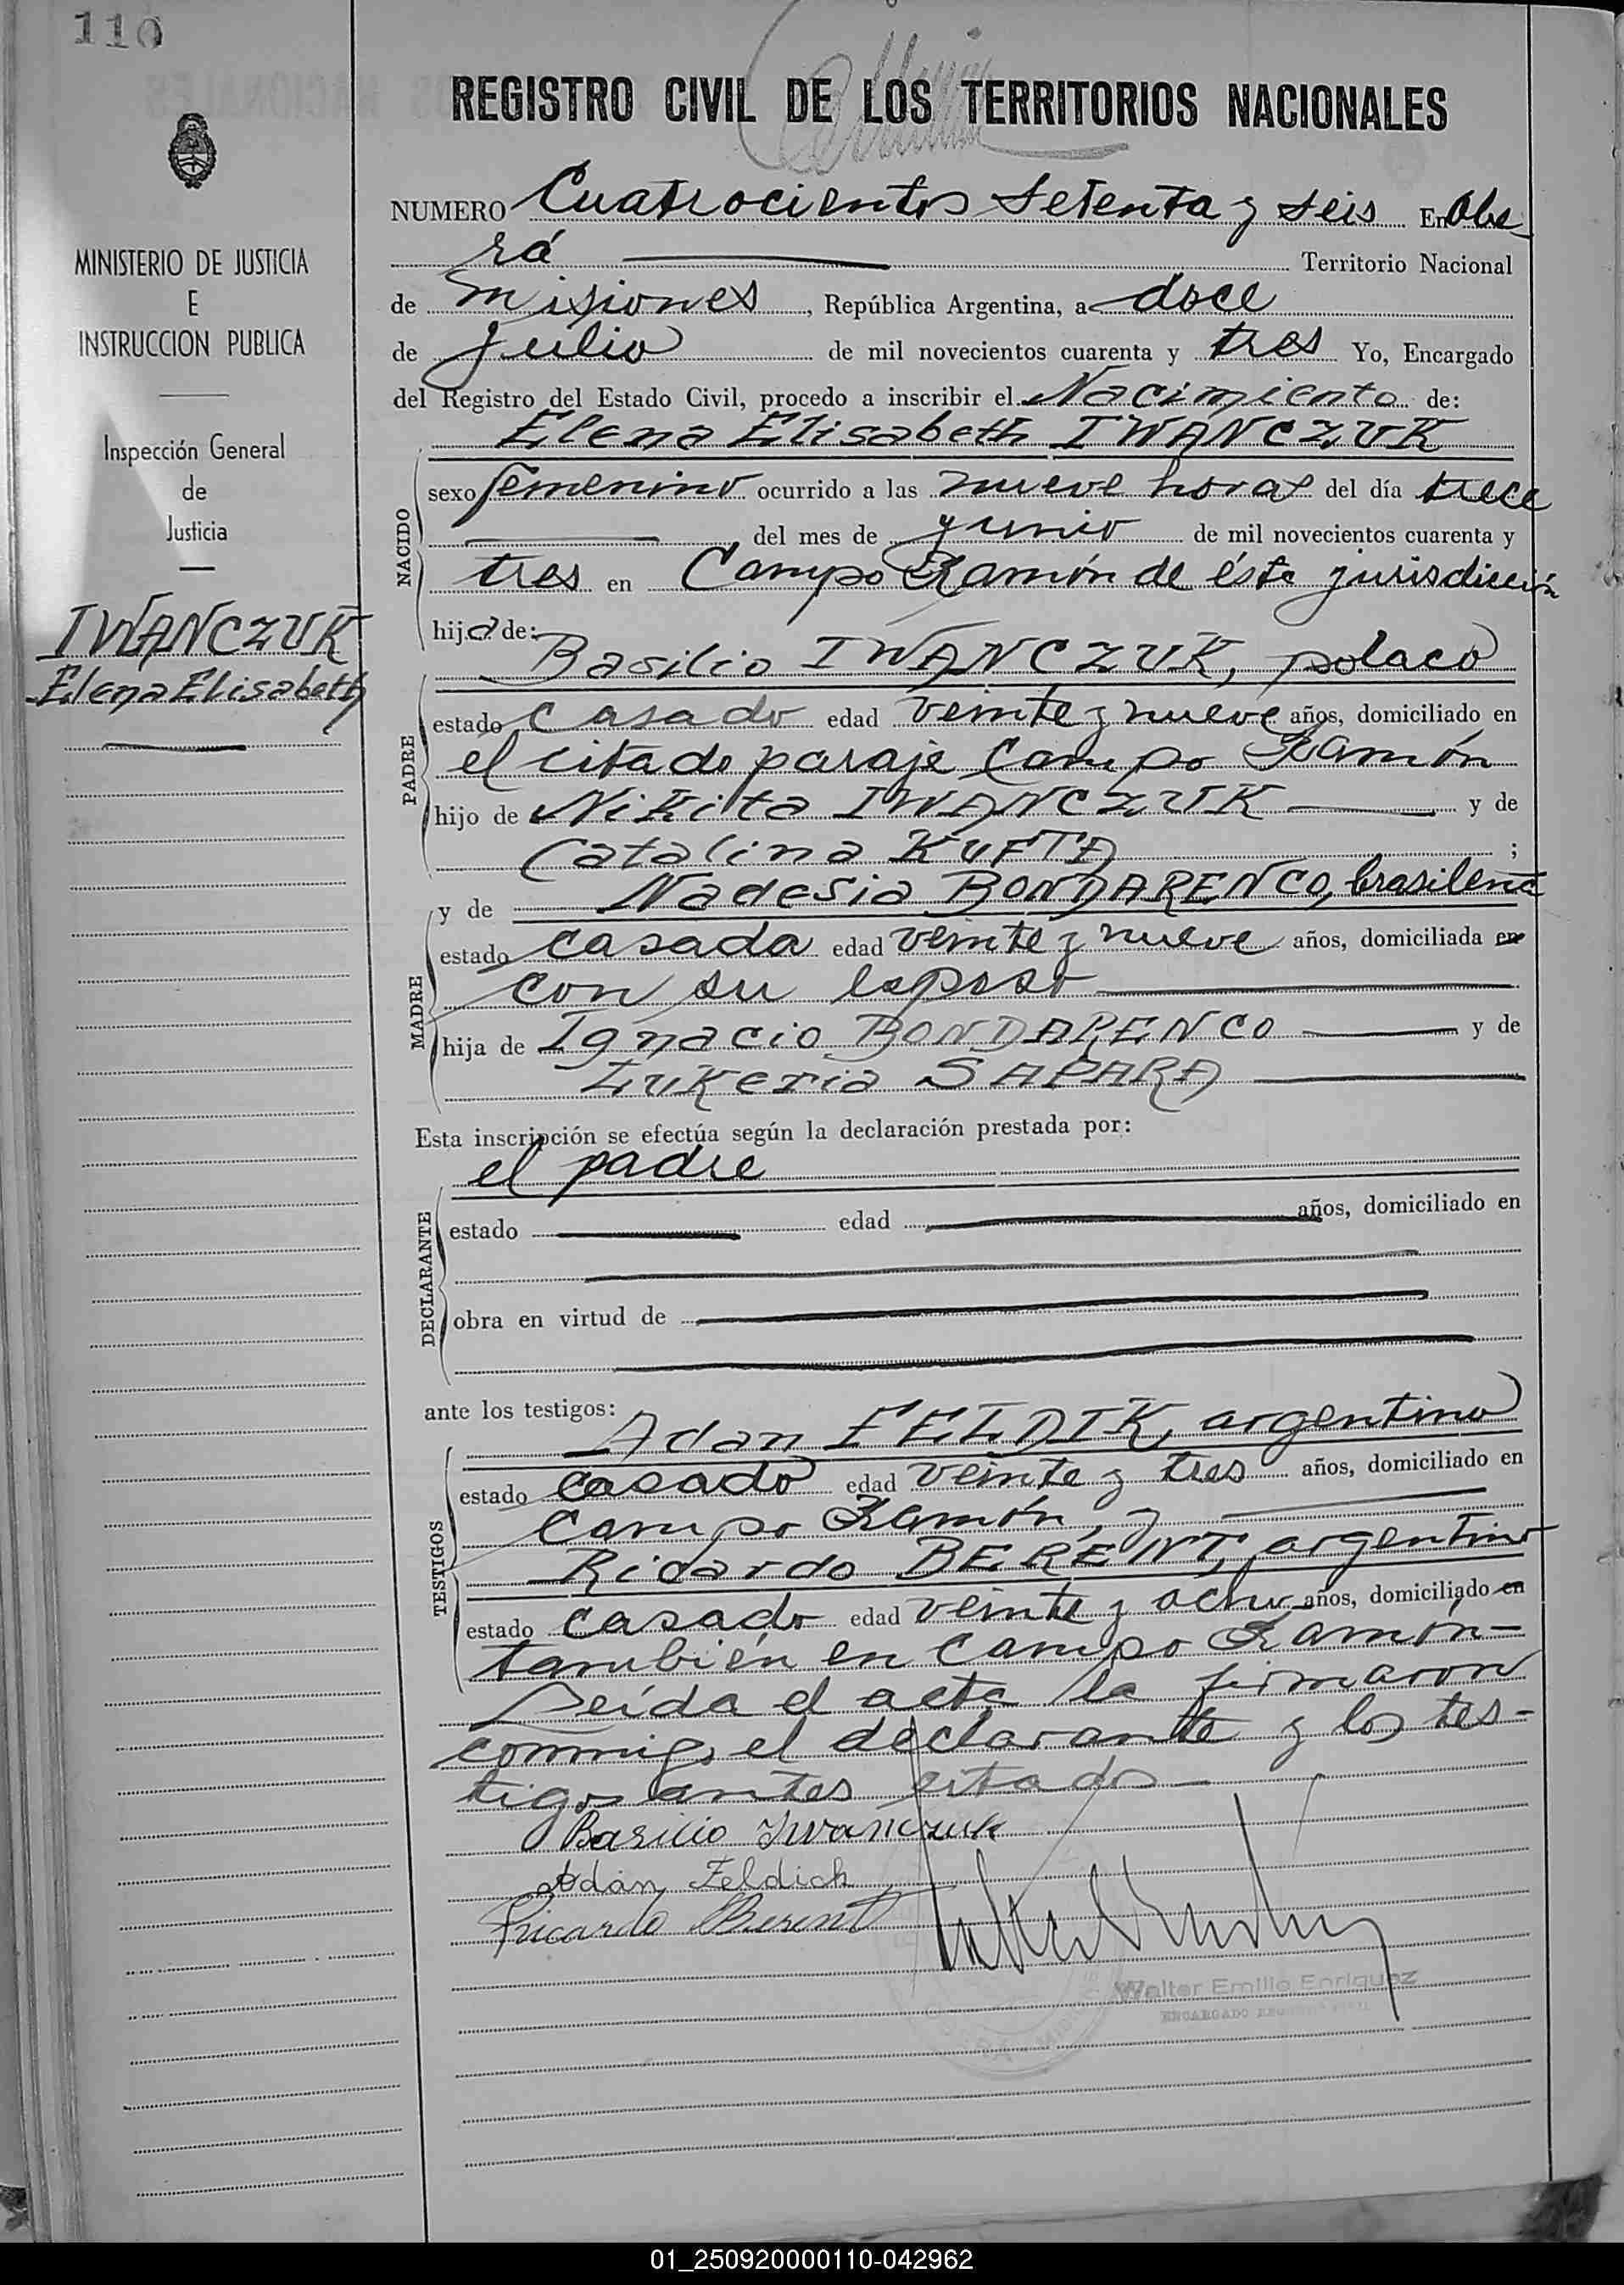 110
REGISTRO CIVIL DE LOS TERRITORIOS NACIONALES
MINISTERIO DE JUSTICIA
E
INSTRUCCION PUBLICA
Inspección General
de
Justicia
IWANCZUK
Elena Elisabeth
NUMERO Cuatrocientos setenta y seis En Obe
rá Territorio Nacional
de Misiones, República Argentina, a doce
de julio de mil novecientos cuarenta y tres Yo, Encargado
del Registro del Estado Civil, procedo a inscribir el Nacimiento de:
Elena Elisabeth IWANCZUK
NACIDO
sexo femenino ocurrido a las nueve horas del día trece
del mes de junio de mil novecientos cuarenta y
tres en Campo Ramón de ésta jurisdicción
hija de:
Basilio IWANCZUK, polaco
PADRE
estado casado edad veinte y nueve años, domiciliado en
el citado paraje Campo Ramón
hijo de Nikita IWANCZUK y de
Catalina KUFTA ;
y de Nadesia BONDARENCO, brasileña
MADRE
estado casada edad veinte y nueve años, domiciliada en
con su esposo
hija de Ignacio BONDARENCO y de
Lukeria SAPARA
Esta inscripción se efectúa según la declaración prestada por:
el padre
DECLARANTE
estado edad años, domiciliado en
obra en virtud de
ante los testigos:
Adan FELDIK, argentino
TESTIGOS
estado casado edad veinte y tres años, domiciliado en
Campo Ramón, y
Ricardo BERENT, argentino
estado casado edad veinte y ocho años, domiciliado en
también en Campo Ramón-
Leída el acta la firmaron
conmigo el declarante y los tes-
tigos antes citados-
Basilio Iwanczuk
Adán Feldich
Ricardo Berent
Walter Emilio Enriquez
01_250920000110-042962